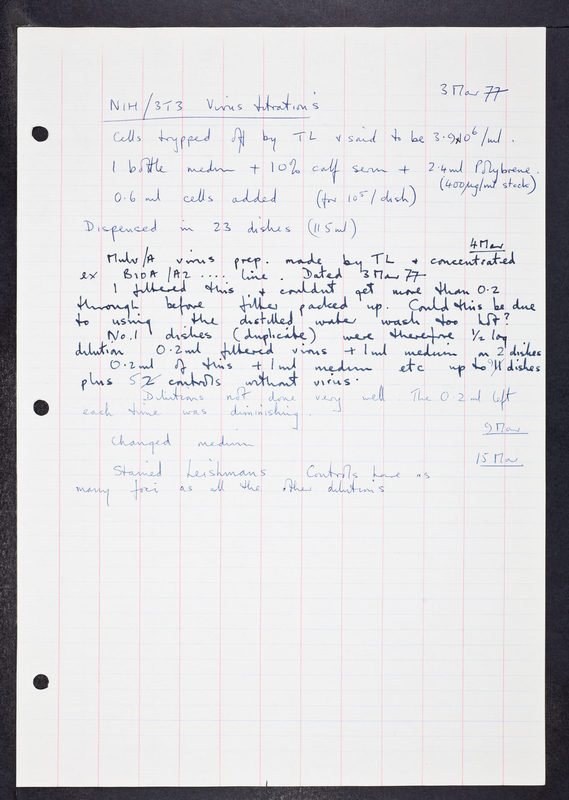 3 Mar 77
NIH/3T3 Virus titrations
Cells trypped off by TL & said to be 3.9x10⁶/ml.
1 bottle medium + 10% calf serum + 2.4ml Polybrene.
(400µg/ml stock)
0.6 ml cells added (for 10⁵/dish)
Dispensed in 23 dishes (115ml)
4 Mar
Mulv/A virus prep. made by TL & concentrated
ex B10A/A2 .... line. Dated 3 Mar 77
I filtered this & couldnt get more than 0.2
through before filter packed up. Could this be due
to using the distilled water wash too hot?
No.1 dishes (duplicate) were therefore ½ log
dilution 0.2ml filtered virus + 1ml medium in 2 dishes
0.2ml of this + 1ml medium etc up to 11 dishes
plus 5 controls without virus.
Dilutions not done very well. The 0.2ml left
each time was diminishing.
9 Mar
Changed medium
15 Mar
Stained Leishmans Controls have as
many foci as all the other dilutions